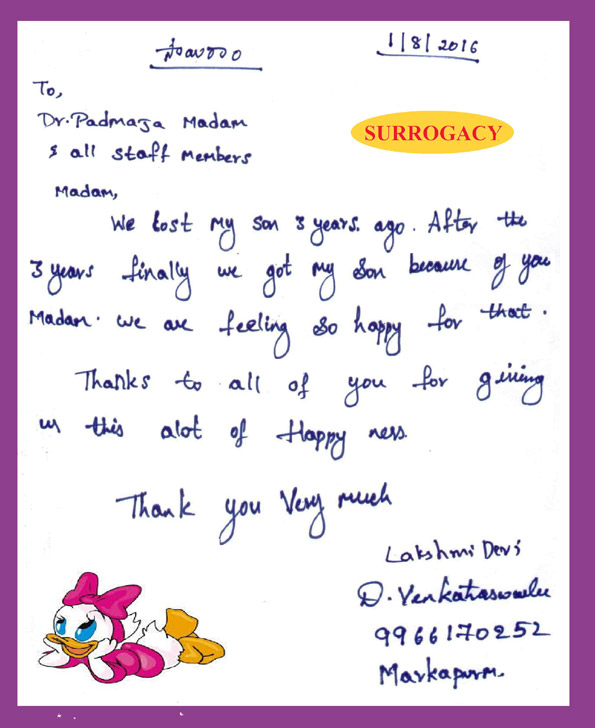 1/8/2016
To,
Dr. Padmaja Madam
SURROGACY
& all staff Members
Madam,
We Lost my son 3 years. ago. After the
3 years finally we got my son because of you
Madam. We are feeling so happy for that.
Thanks to all of you for giving
us this alot of Happy ness
Thank you Very much
Lakshmi Devi
D.
9966170252
Markapurm.